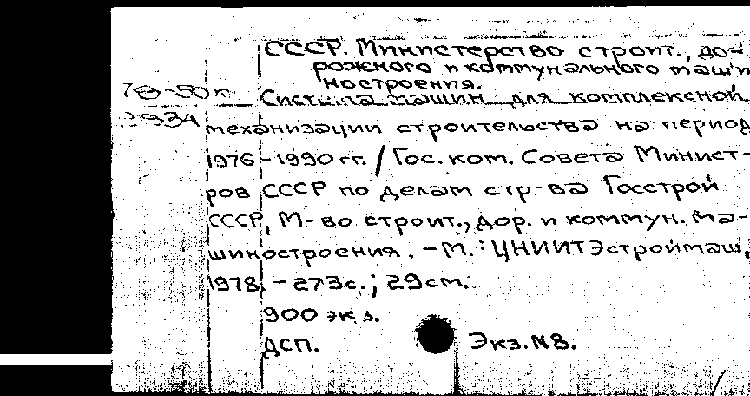 СССР. Министерство строит., до-
рожного и коммунального машин
ностроения.
78-80п Система машин для комплексной
механизации строительства на период
1976-1990 гг. / Гос. ком. Совета Минист-
ров СССР по делам стр-ва Госстрой
СССР, М-во строит., дор. и коммун. ма-
шиностроения. - М.: ЦНИИТЭстроймаш,
1978. - 273с.; 29см.
900 экз.
ДСП. Экз.N8.